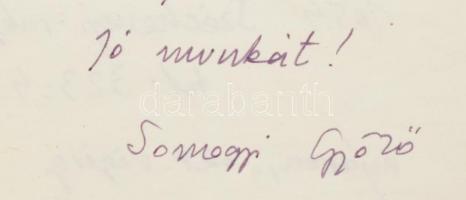 Jó munkát!
darabanth
Somogyi Győző